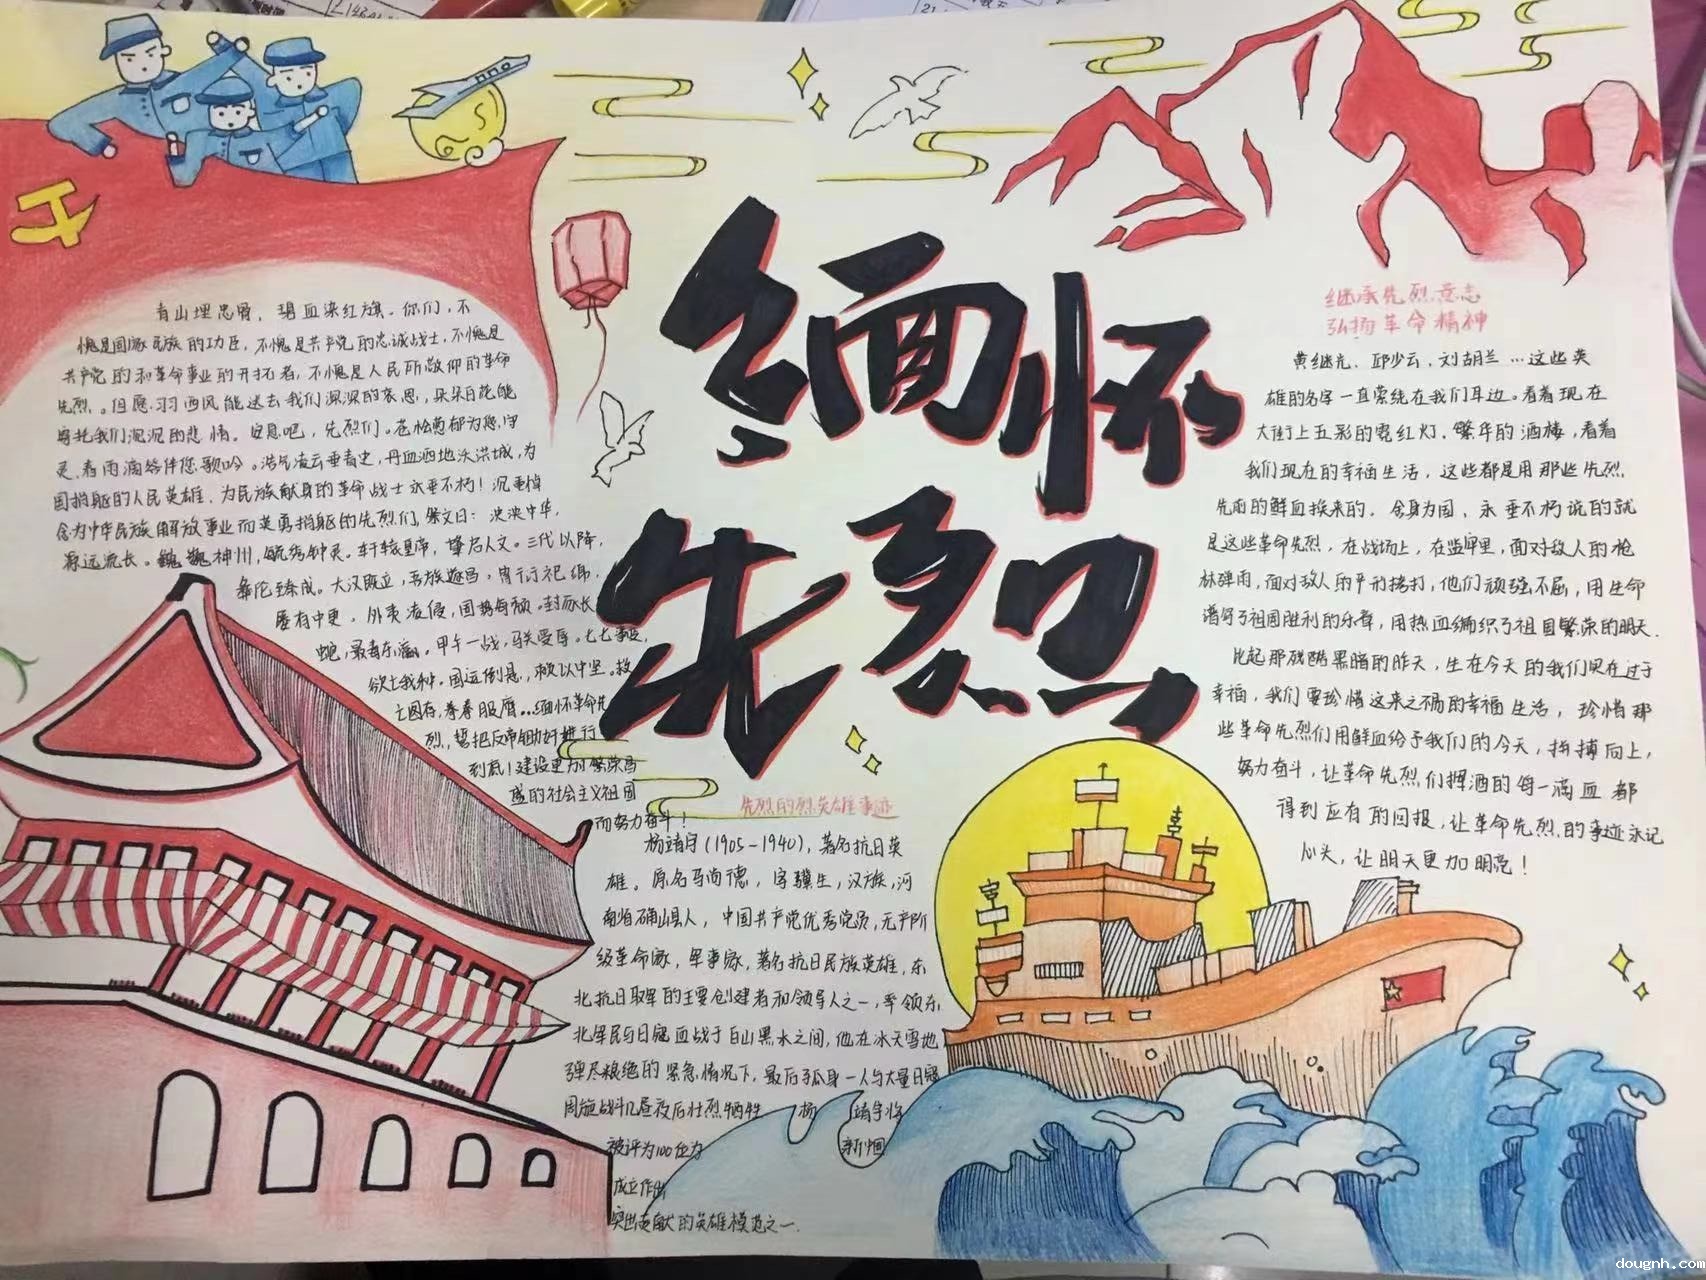 缅怀
先烈
青山埋忠骨，碧血染红旗。你们，不
愧是国家民族的功臣，不愧是共产党的忠诚战士，不愧是
共产党的和革命事业的开拓者，不愧是人民所敬仰的革命
先烈。但愿羽西风能送去我们深深的哀思，朵朵白花能
寄托我们沉沉的悲情。安息吧，先烈们。苍松葱郁为您守
灵，春雨滴答伴您歌吟。浩气凌云垂青史，丹血洒地沃洪城，为
国捐躯的人民英雄、为民族献身的革命战士永垂不朽！沉重悼
念为中华民族解放事业而英勇捐躯的先烈们，祭文曰：泱泱中华，
源远流长。巍巍神州，毓秀钟灵。轩辕皇帝，肇启人文。三代以降，
大汉既立，五族
屡有中更，外夷凌侵，国势每颓。封豕长
蛇，最毒东瀛。甲午一战，马关受辱。七七事变，
欲亡我种。国运倒悬，赖以中坚。救
亡图存，拳拳服膺…缅怀革命先
烈，誓把反帝锄奸进行
到底！建设更加繁荣昌
盛的社会主义祖国
而努力奋斗！
先烈的烈英雄事迹
杨靖宇（1905-1940），著名抗日英
雄。原名马尚德，字骥生，汉族，河
南省确山县人，中国共产党优秀党员，无产阶
级革命家，军事家，著名抗日民族英雄，东
北抗日联军的主要创建者和领导人之一，率领东
北军民与日寇血战于白山黑水之间，他在冰天雪地
弹尽粮绝的紧急情况下，最后孤身一人与大量日寇
周旋战斗几昼夜后壮烈牺牲 杨 靖宇将
被评为100位为 新中国
成立作出
突出贡献的英雄模范之一.
继承先烈意志
弘扬革命精神
黄继光、邱少云、刘胡兰…这些英
雄的名字一直萦绕在我们耳边。看着现在
大街上五彩的霓红灯，繁华的酒楼，看着
我们现在的幸福生活，这些都是用那些先烈
先前的鲜血换来的。舍身为国，永垂不朽说的就
是这些革命先烈，在战场上，在监牢里，面对敌人的枪
林弹雨，面对敌人的严刑拷打，他们顽强不屈，用生命
谱写了祖国胜利的乐章，用热血编织了祖国繁荣的明天.
比起那残酷黑暗的昨天，生在今天的我们实在过于
幸福，我们要珍惜这来之不易的幸福生活，珍惜那
些革命先烈们用鲜血给予我们的今天，拼搏向上，
努力奋斗，让革命先烈们挥洒的每一滴血都
得到应有的回报，让革命先烈的事迹永记
心头，让明天更加明亮！
dougnh.com